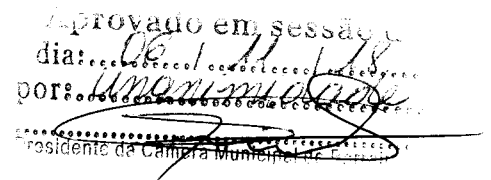 Aprovado em sessão d
dia: 06 / 11 / 18
por: Unanimidade
Presidente da Câmara Municipal de